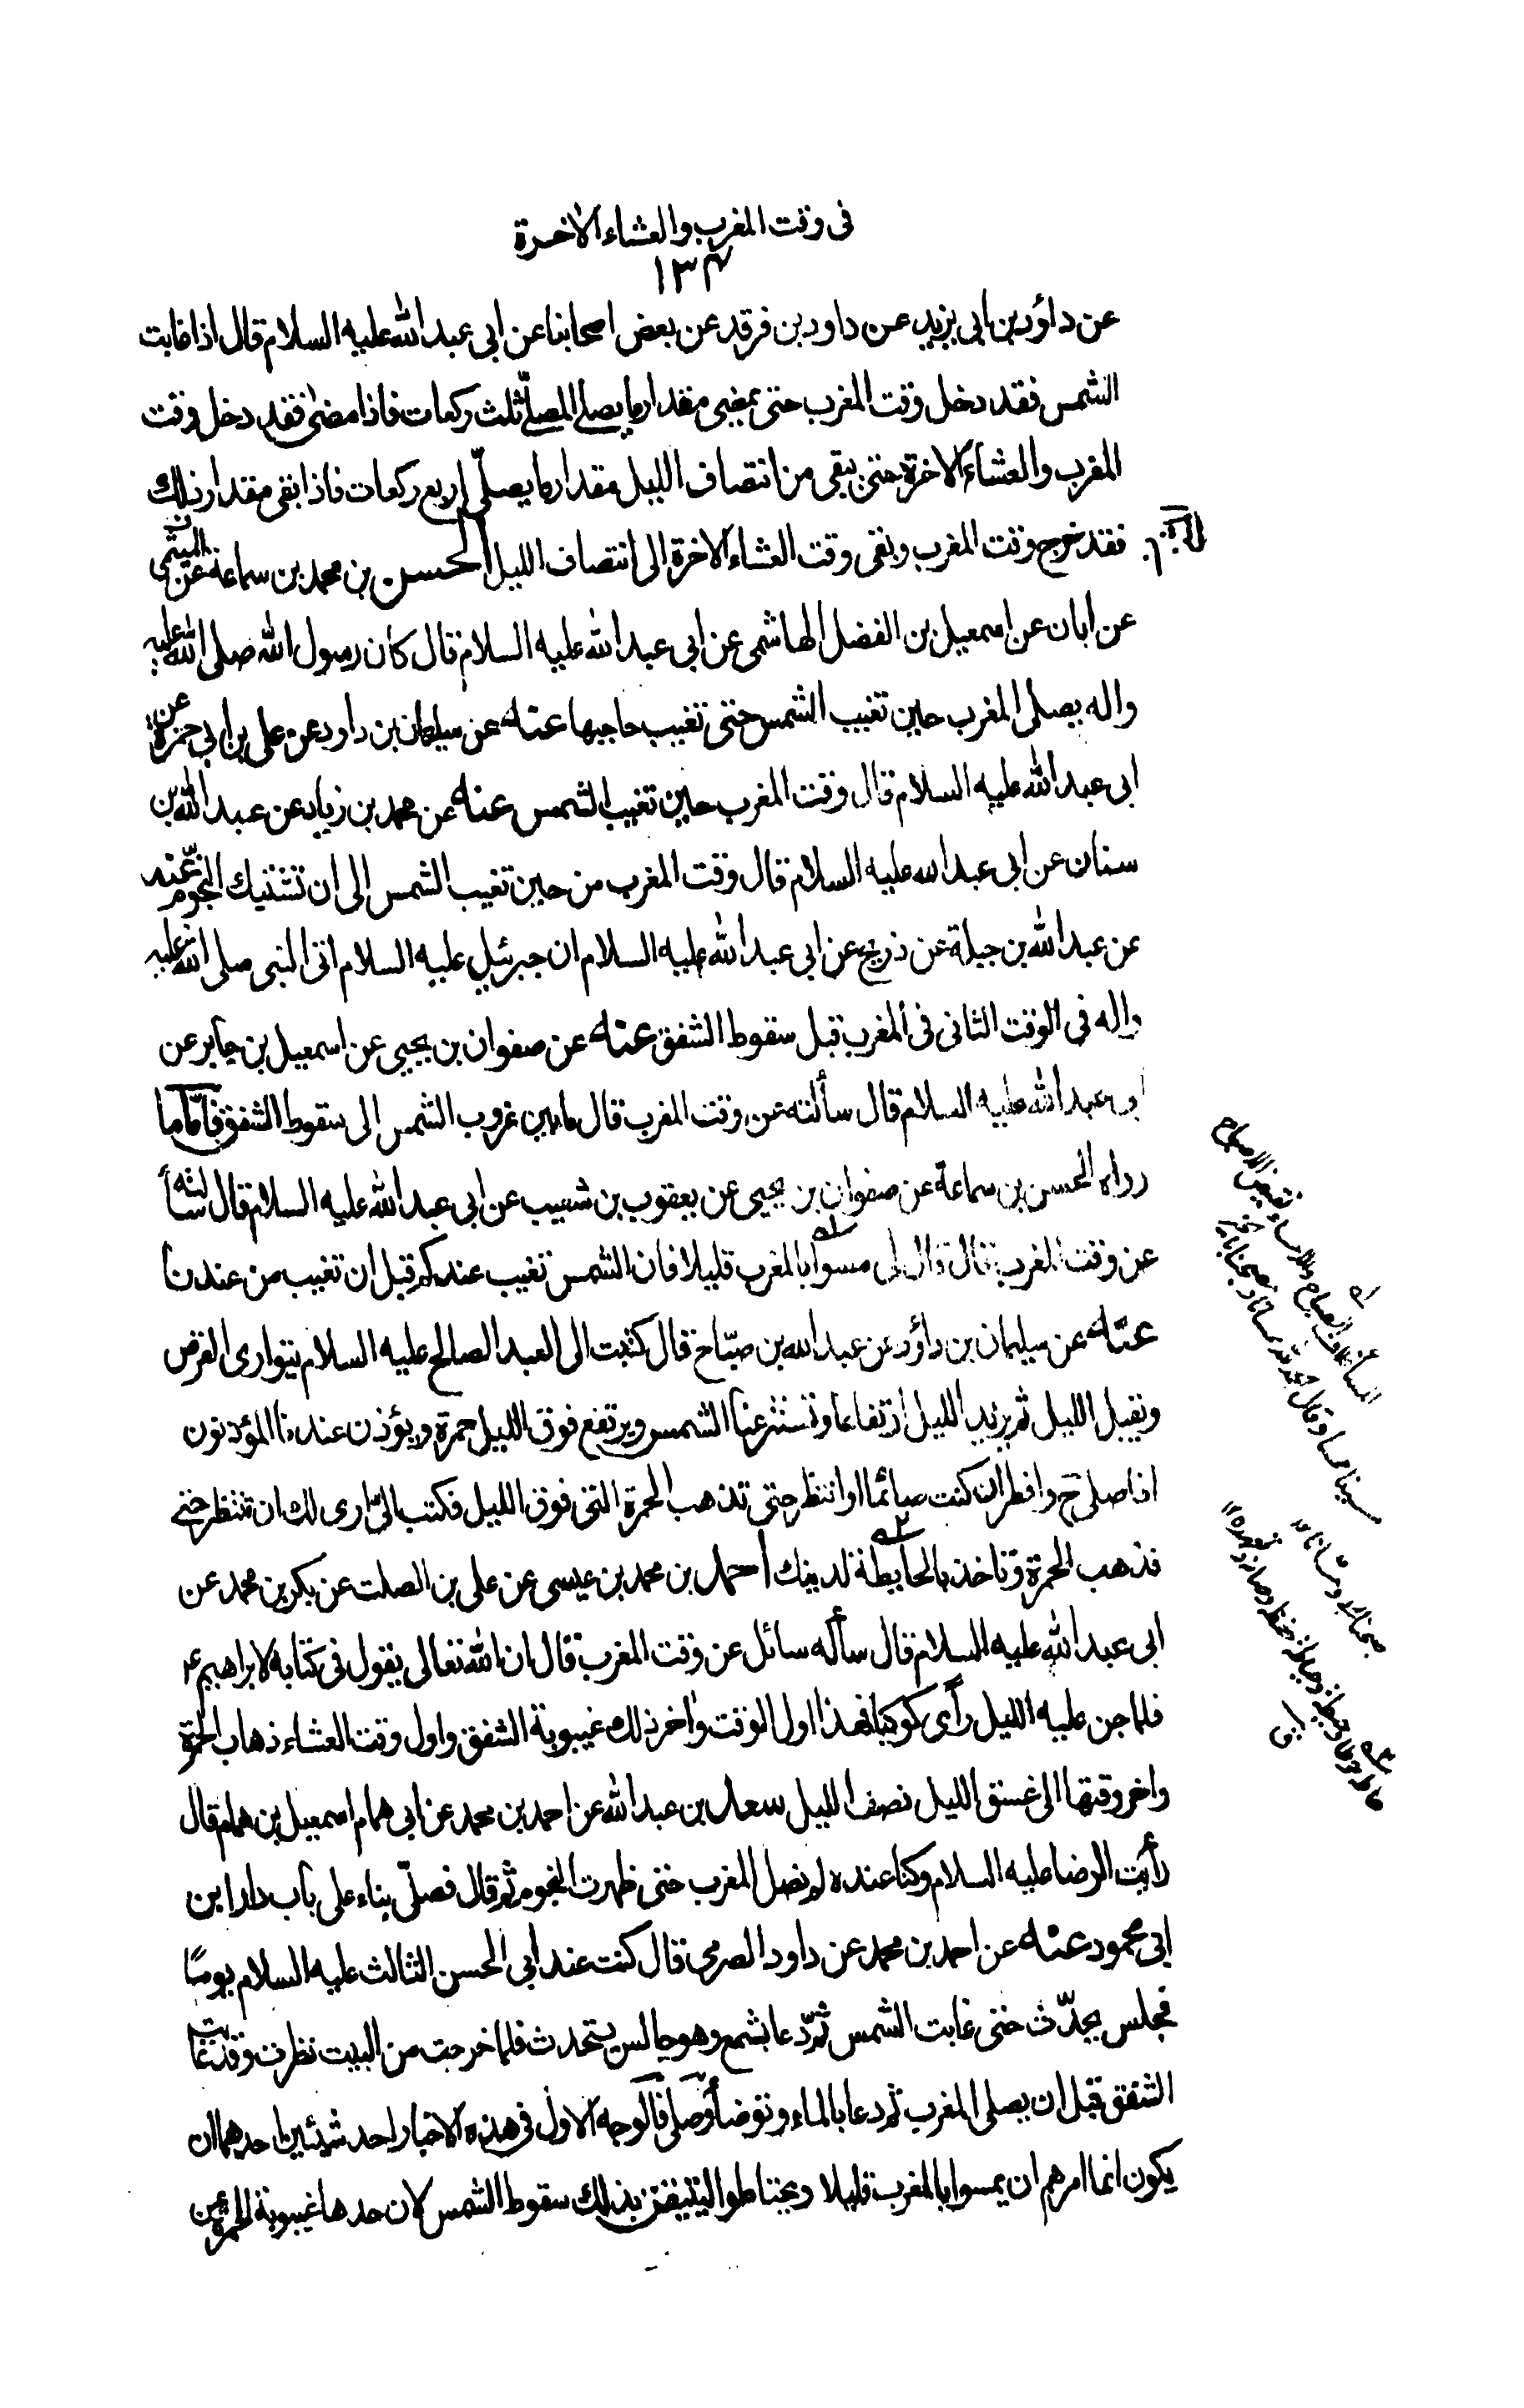 فى وقت المغرب والعشاء الاخرة
١٣٧
عن داؤد بن ابى يزيد عن داود بن فرقد عن بعض اصحابنا عن ابى عبد الله عليه السلام قال اذا غابت
الشمس فقد دخل وقت المغرب حتى يمضى مقدار ما يصلى المصلّى ثلث ركعات فاذا مضى فقد دخل وقت
المغرب والعشاء الاخرة حتى يبقى من انتصاف الليل مقدار ما يصلّى اربع ركعات فاذا بقى مقدار ذلك
فقد خرج وقت المغرب وبقى وقت العشاء الاخرة الى انتصاف الليل الحسن بن محمد بن سماعة عن الميثمى
عن ابان عن اسمعيل بن الفضل الهاشمى عن ابى عبد الله عليه السلام قال كان رسول الله صلى الله عليه
واله يصلى المغرب حين تغيب الشمس حتى تغيب حاجبها عنه عن سليمان بن داود عن على بن ابى حمزة عن
ابى عبد الله عليه السلام قال وقت المغرب حين تغيب الشمس عنه عن محمد بن زياد عن عبد الله بن
سنان عن ابى عبد الله عليه السلام قال وقت المغرب من حين تغيب الشمس الى ان تشتبك النجوم عنه
عن عبد الله بن جبلة عن ذريح عن ابى عبد الله عليه السلام ان جبرئيل عليه السلام اتى النبى صلى الله عليه
واله فى الوقت الثانى فى المغرب قبل سقوط الشفق عنه عن صفوان بن يحيى عن اسمعيل بن جابر عن
ابى عبد الله عليه السلام قال سألته عن وقت المغرب قال ما بين غروب الشمس الى سقوط الشفق فامّا ما
رواه الحسن بن سماعة عن صفوان بن يحيى عن يعقوب بن شعيب عن ابى عبد الله عليه السلام قال سألته
عن وقت المغرب قال قال لى مسوا بالمغرب قليلا فان الشمس تغيب عندكم قبل ان تغيب من عندنا
عنه عن سليمان بن داؤد عن عبد الله بن صبّاح قال كتبت الى العبد الصالح عليه السلام يتوارى القرص
ويقبل الليل ثم يزيد الليل ارتفاعا وتستتر عنا الشمس ويرتفع فوق الليل حمرة ويؤذن عندنا المؤذنون
افاصلى ح وافطر ان كنت صائما او انتظر حتى تذهب الحمرة التى فوق الليل فكتب الىّ ارى لك ان تنتظر حتى
تذهب الحمرة وتاخذ بالحايطة لدينك احمد بن محمد بن عيسى عن على بن الصلت عن بكر بن محمد عن
ابى عبد الله عليه السلام قال سأله سائل عن وقت المغرب قال ان الله تعالى يقول فى كتابه لابراهيم ع
فلما جن عليه الليل رأى كوكبا فهذا اول الوقت واخر ذلك غيبوبة الشفق واول وقت العشاء ذهاب الحمرة
واخر وقتها الى غسق الليل نصف الليل سعد بن عبد الله عن احمد بن محمد عن ابى همام اسمعيل بن همام قال
رأيت الرضا عليه السلام وكنا عنده لم يصل المغرب حتى ظهرت النجوم ثم قال فصلّى بناء على باب دار ابن
ابى محمود عنه عن احمد بن محمد عن داود الصرمى قال كنت عند ابى الحسن الثالث عليه السلام يومًا
فجلس يحدّث حتى غابت الشمس ثمّ دعا بشمع وهو جالس يتحدث فلما خرجت من البيت نظرت وقد غاب
الشفق قبل ان يصلى المغرب ثم دعا بالماء وتوضأ وصلى فالوجه الاول فى هذه الاخبار احد شيئين احدهما ان
يكون انما امرهم ان يمسوا بالمغرب قليلا ويحتاطوا ليتيقن بذلك سقوط الشمس لان حدها غيبوبة الحمرة عن